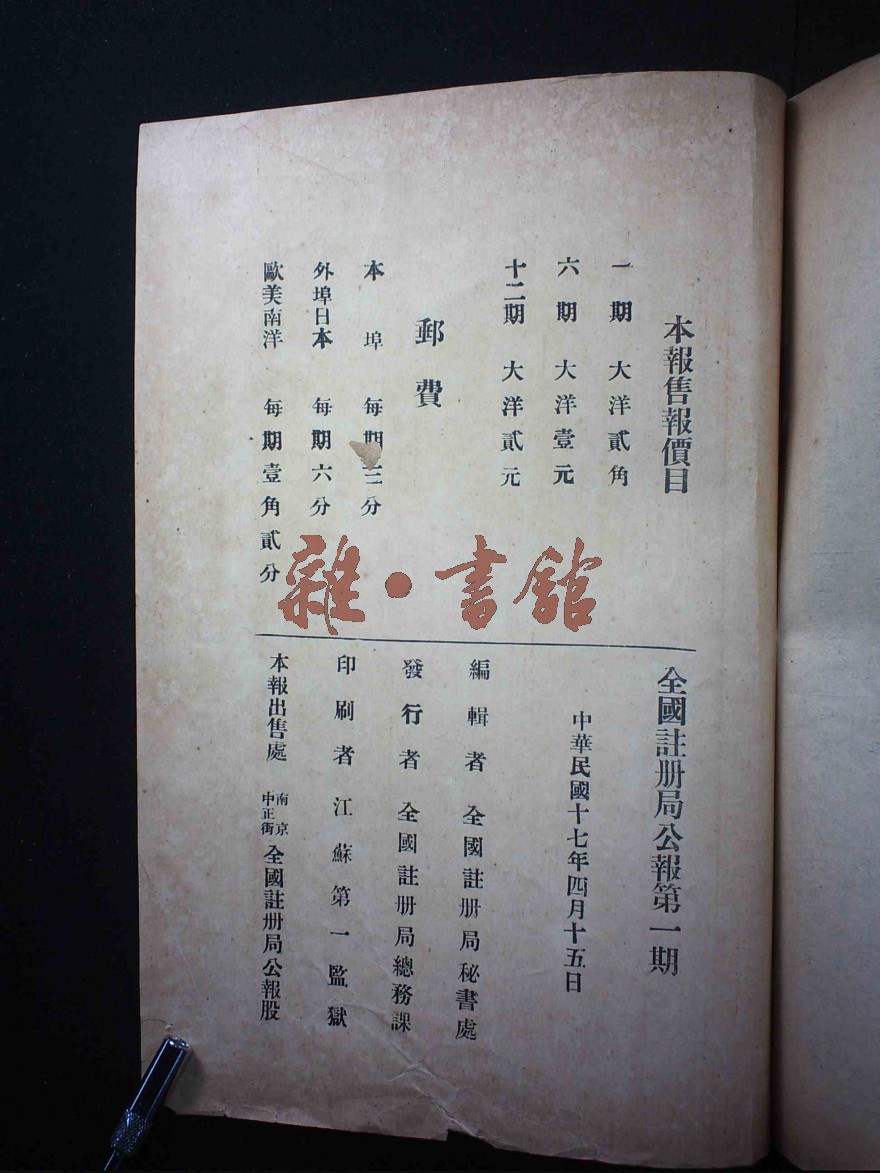 本報售報價目
一期 大洋貳角
六期 大洋壹元
十二期 大洋貳元
郵費
本埠 每期三分
外埠日本 每期六分
歐美南洋 每期壹角貳分
全國註册局公報第一期
中華民國十七年四月十五日
編輯者 全國註册局秘書處
發行者 全國註册局總務課
印刷者 江蘇第一監獄
本報出售處 南京中正街 全國註册局公報股
雜·書館